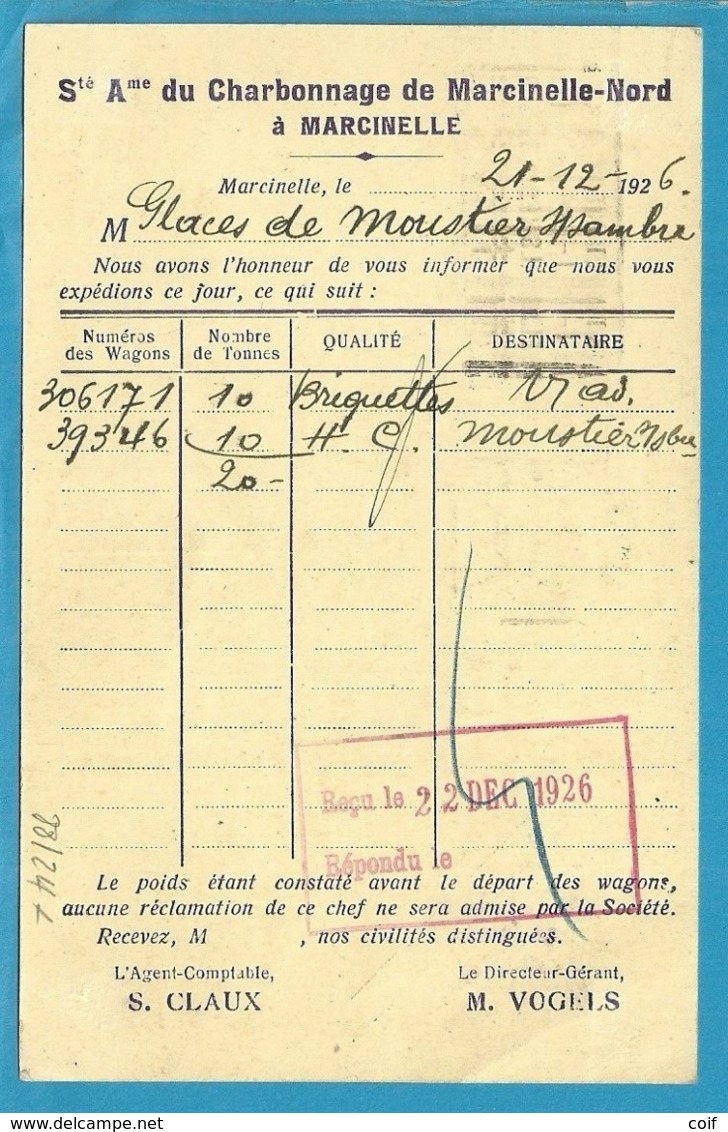 Sté Ame du Charbonnage de Marcinelle-Nord
à MARCINELLE
Marcinelle, le 21-12-1926.
M Glaces de Moustier s/Sambre
Nous avons l'honneur de vous informer que nous vous
expédions ce jour, ce qui suit :
Numéros des Wagons Nombre de Tonnes QUALITÉ DESTINATAIRE
306171 10 Briquettes
39346 10 H. C. Moustier s/Sbre
20-
Reçu le 22 DEC 1926
Répondu le
Le poids étant constaté avant le départ des wagons,
aucune réclamation de ce chef ne sera admise par la Société.
Recevez, M , nos civilités distinguées.
L'Agent-Comptable, Le Directeur-Gérant,
S. CLAUX M. VOGELS
www.delcampe.net coif